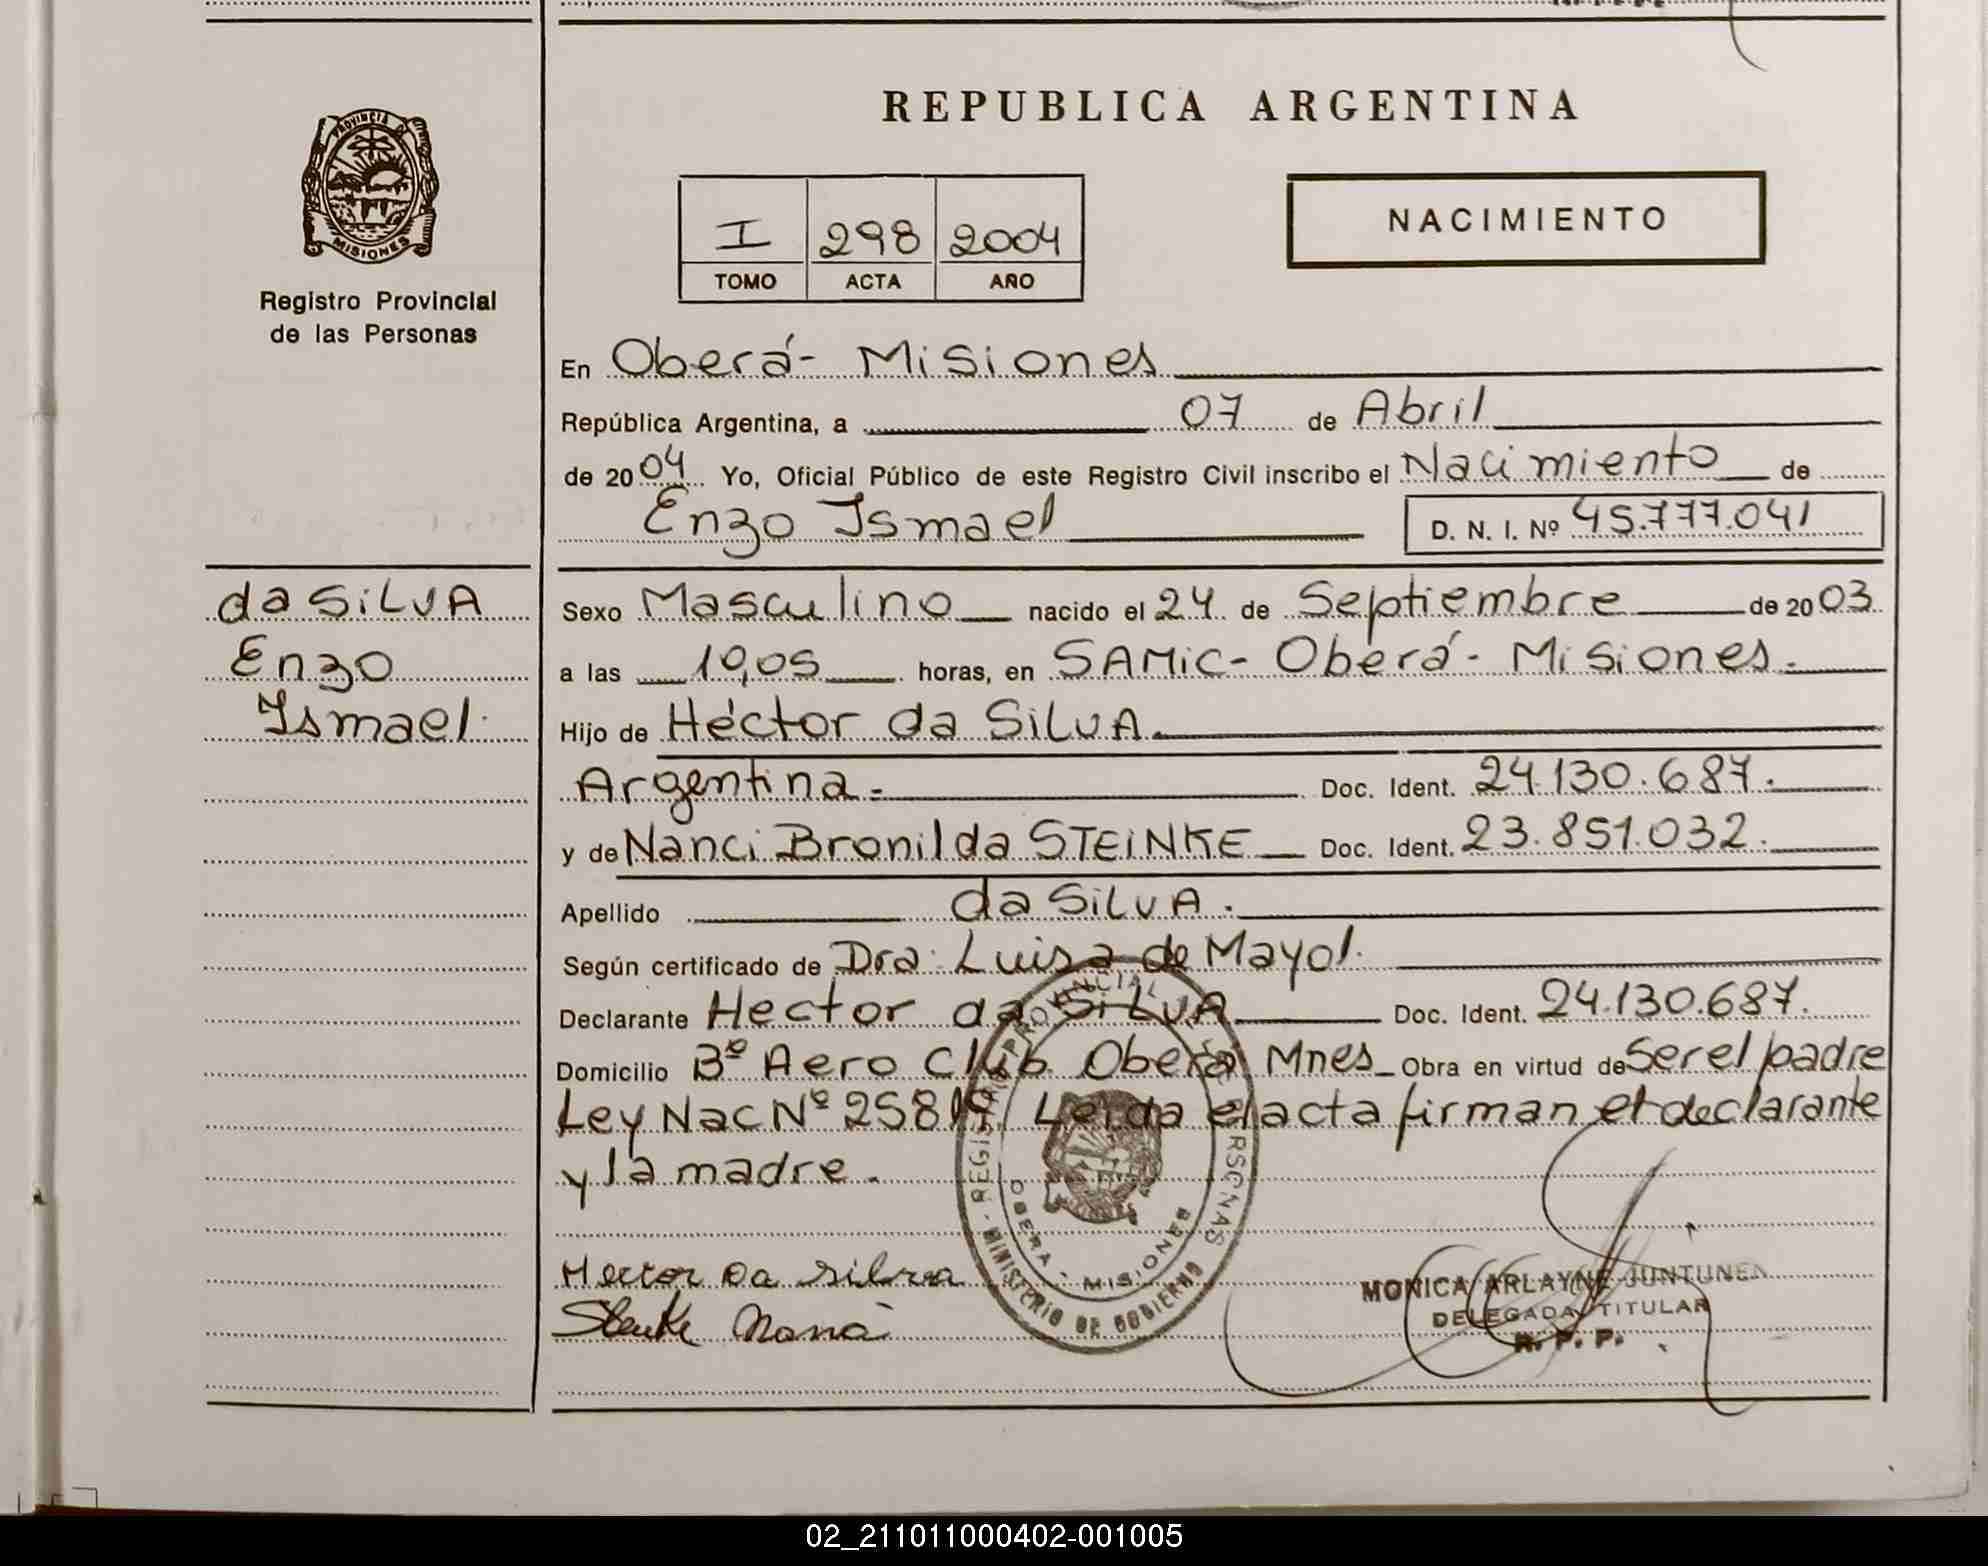 PROVINCIA D
MISIONES
Registro Provincial
de las Personas
REPUBLICA ARGENTINA
I 298 2004
TOMO ACTA AÑO
NACIMIENTO
En Oberá- Misiones
República Argentina, a 07 de Abril
de 2004 Yo, Oficial Público de este Registro Civil inscribo el Nacimiento de
Enzo Ismael D. N. I. Nº 45.777.041
da SILVA
Enzo
Ismael.
Sexo Masculino nacido el 24 de Septiembre de 2003
a las horas, en SAMiC- Oberá- Misiones.
Hijo de Héctor da SiLVA.
Argentina.- Doc. Ident. 24.130.687.
y de Nanci Bronilda STEiNKE Doc. Ident. 23.851.032.
Apellido da SiLVA.
Según certificado de Dra. Luisa de Mayol.
Declarante Hector da SiLVA Doc. Ident. 24.130.687.
Domicilio Bº Aero Club Oberá Mnes Obra en virtud de Ser el padre
Ley Nac Nº Leida el acta firman el declarante
y la madre.
REGISTRO PROVINCIAL DE LAS PERSONAS
OBERA - MISIONES
- MINISTERIO DE GOBIERNO
Hector Da Silva
MONICA ARLAYNE JUNTUNEN
DELEGADA TITULAR
R. P. P.
02_211011000402-001005